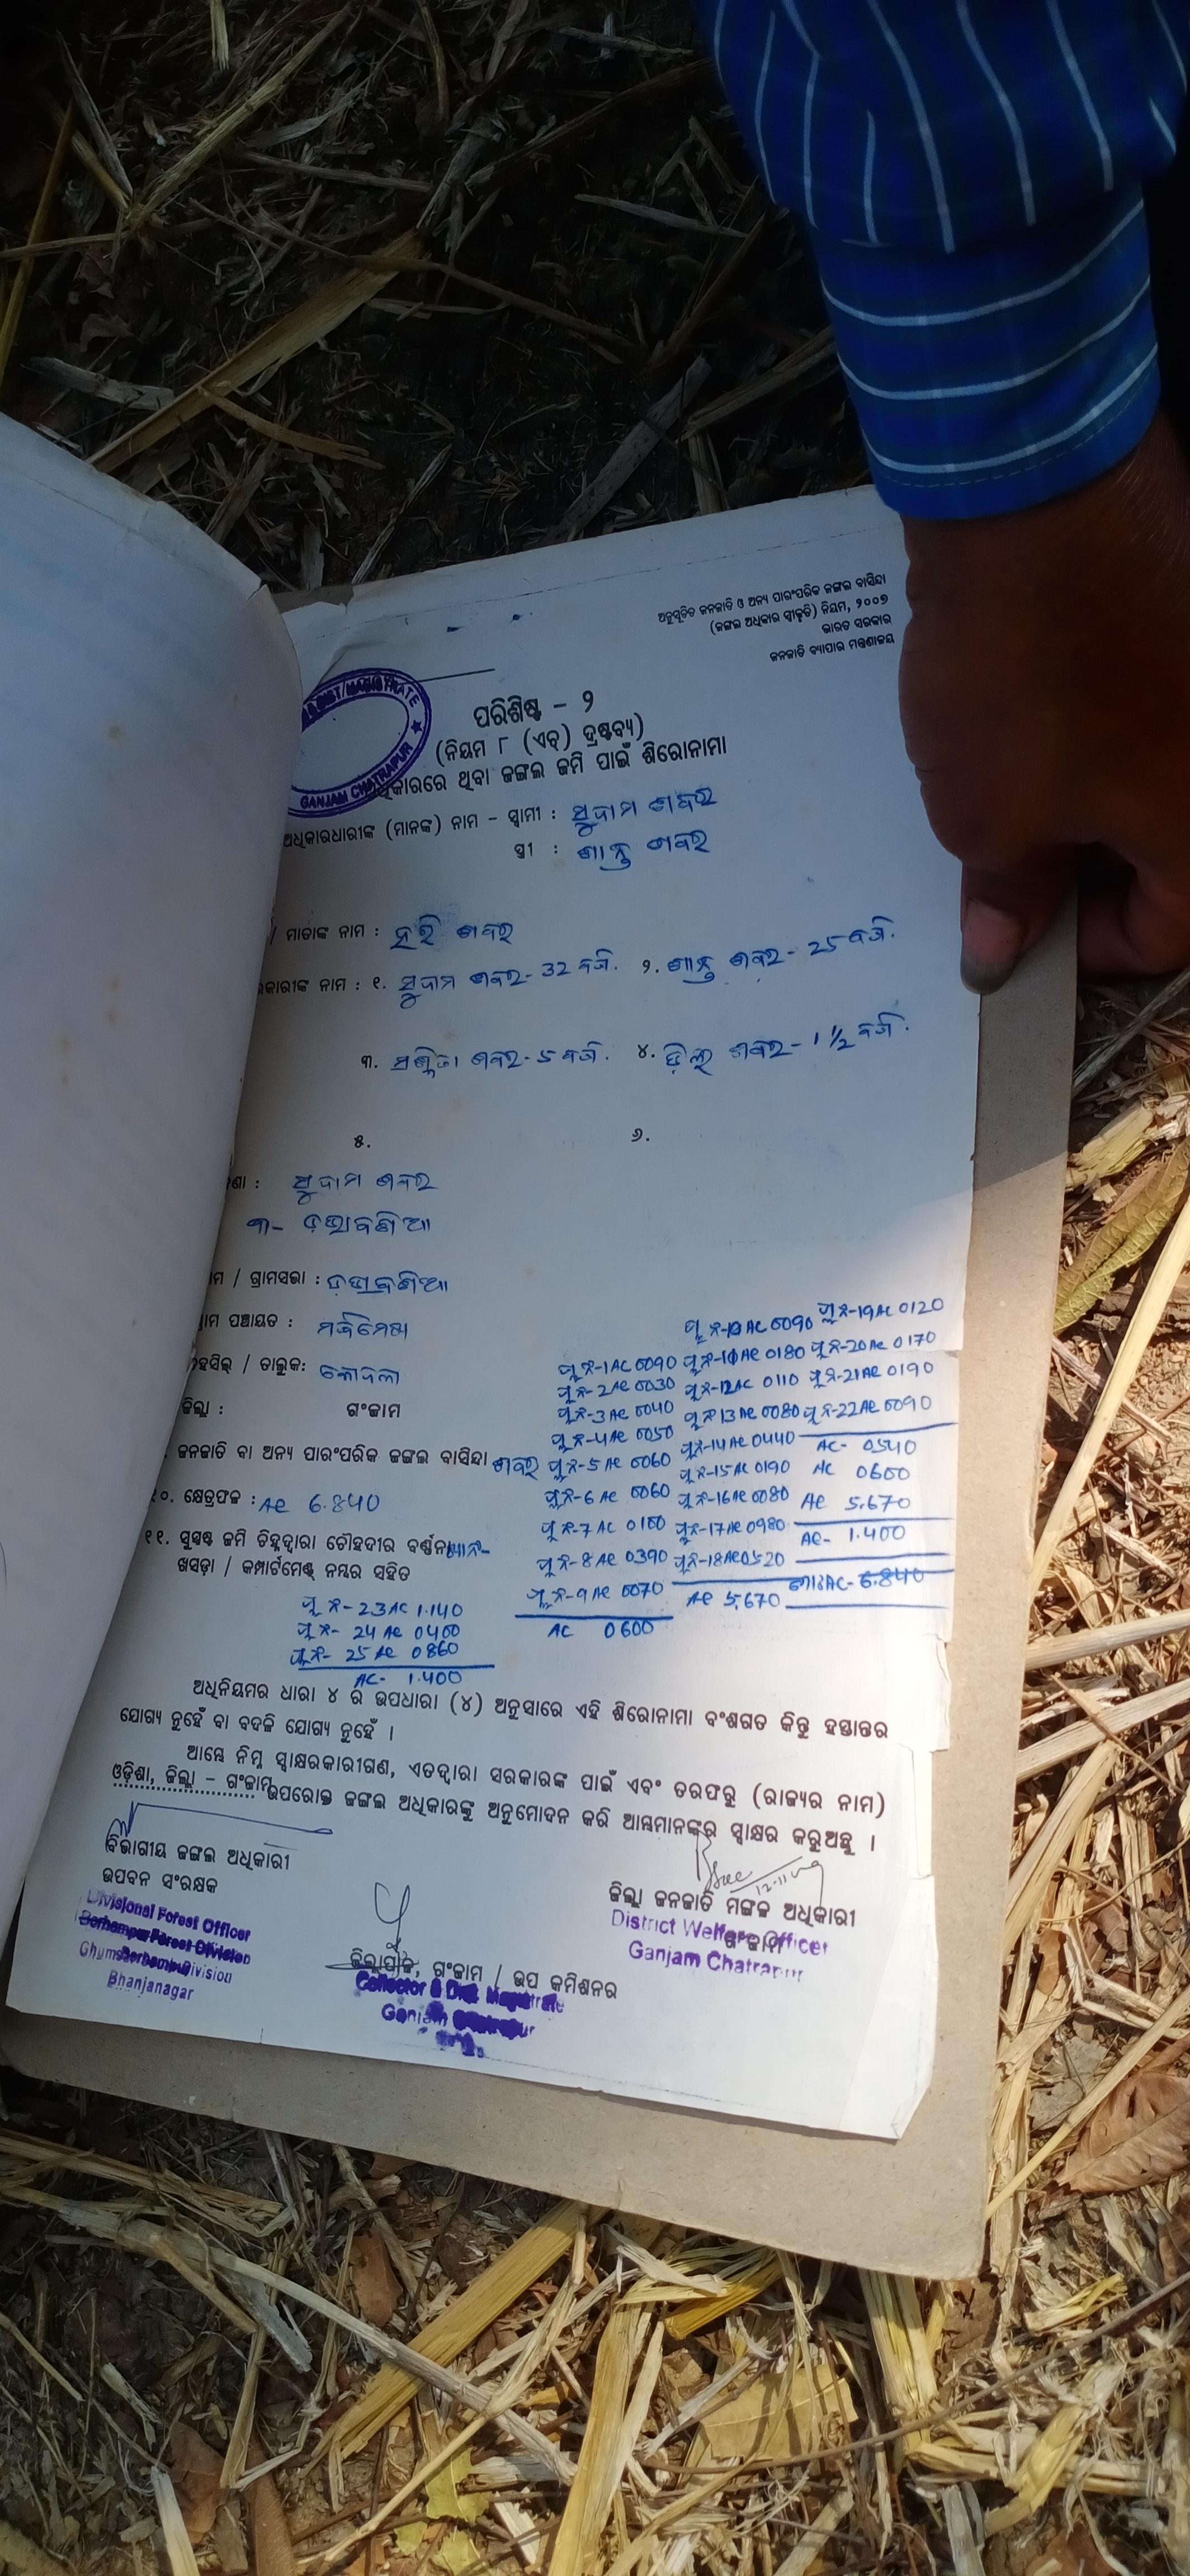 ଅନୁସୂଚିତ ଜନଜାତି ଓ ଅନ୍ୟ ପାରଂପରିକ ଜଙ୍ଗଲ ବାସିନ୍ଦା
(ଜଙ୍ଗଲ ଅଧିକାର ସ୍ୱୀକୃତି) ନିୟମ, ୨୦୦୭
ଭାରତ ସରକାର
ଜନଜାତି ବ୍ୟାପାର ମନ୍ତ୍ରଣାଳୟ
GANJAM CHATRAPUR
ପରିଶିଷ୍ଟ - ୨
(ନିୟମ ୮ (ଏଚ୍) ଦ୍ରଷ୍ଟବ୍ୟ)
ଅଧିକାରରେ ଥିବା ଜଙ୍ଗଲ ଜମି ପାଇଁ ଶିରୋନାମା
ଅଧିକାରଧାରୀଙ୍କ (ମାନଙ୍କ) ନାମ - ସ୍ୱାମୀ : ସୁଦାମ ଶବର
ସ୍ତ୍ରୀ : ଶାନ୍ତୁ ଶବର
/ ମାତାଙ୍କ ନାମ : ହରି ଶବର
କାରୀଙ୍କ ନାମ : ୧. ସୁଦାମ ଶବର - 32 ବର୍ଷ. ୨. ଶାନ୍ତୁ ଶବର - 25 ବର୍ଷ.
୩. ଶବର - 5 ବର୍ଷ. ୪. ଶବର - 1 1/2 ବର୍ଷ.
୫. ୬.
ଣା : ସୁଦାମ ଶବର
/ ଗ୍ରାମସଭା :
ଗ୍ରାମ ପଞ୍ଚାୟତ :
ତହସିଲ୍ / ତାଲୁକ: କୋଦଳା
ଜିଲ୍ଲା : ଗଂଜାମ
ଜନଜାତି ବା ଅନ୍ୟ ପାରଂପରିକ ଜଙ୍ଗଲ ବାସିନ୍ଦା ଶବର
୧୦. କ୍ଷେତ୍ରଫଳ : Ac 6.840
୧୧. ସୁସ୍ପଷ୍ଟ ଜମି ଚିହ୍ନଦ୍ୱାରା ଚୌହଦୀର ବର୍ଣ୍ଣନା
ଖସଡ଼ା / କମ୍ପାର୍ଟମେଣ୍ଟ୍ ନମ୍ବର ସହିତ
ପ୍ଲ ନଂ-23 AC 1.140
ପ୍ଲ ନଂ- 24 Ac 0400
ପ୍ଲ ନଂ- 25 Ac 0860
AC- 1.400
ପ୍ଲ ନଂ-1 AC 0090
ପ୍ଲ ନଂ-2 Ac 0030
ପ୍ଲ ନଂ-3 Ac 0040
ପ୍ଲ ନଂ-4 Ac 0050
ପ୍ଲ ନଂ-5 Ac 0060
ପ୍ଲ ନଂ-6 Ac 0060
ପ୍ଲ ନଂ-7 AC
ପ୍ଲ ନଂ-8 Ac 0390
ପ୍ଲ ନଂ-9 Ac 0070
AC 0600
AC 0090
Ac 0180
ପ୍ଲ ନଂ-12 AC 0110
ପ୍ଲ ନଂ 13 Ac 0080
ପ୍ଲ ନଂ-14 Ac 0440
ପ୍ଲ ନଂ-15 AC 0190
ପ୍ଲ ନଂ-16 Ac 0080
ପ୍ଲ ନଂ-17 Ac 0980
ପ୍ଲ ନଂ-18 Ac 0520
Ac 5.670
ପ୍ଲ ନଂ-19 AC 0120
ପ୍ଲ ନଂ-20 Ac 0170
ପ୍ଲ ନଂ-21 Ac 0190
ପ୍ଲ ନଂ-22 Ac 0090
AC- 0540
AC 0600
Ac 5.670
AC- 1.400
AC- 6.840
ଅଧିନିୟମର ଧାରା ୪ ର ଉପଧାରା (୪) ଅନୁସାରେ ଏହି ଶିରୋନାମା ବଂଶଗତ କିନ୍ତୁ ହସ୍ତାନ୍ତର
ଯୋଗ୍ୟ ନୁହେଁ ବା ବଦଳି ଯୋଗ୍ୟ ନୁହେଁ ।
ଆମ୍ଭେ ନିମ୍ନ ସ୍ୱାକ୍ଷରକାରୀଗଣ, ଏତଦ୍ୱାରା ସରକାରଙ୍କ ପାଇଁ ଏବଂ ତରଫରୁ (ରାଜ୍ୟର ନାମ)
ଓଡ଼ିଶା, ଜିଲ୍ଲା - ଗଂଜାମ ଉପରୋକ୍ତ ଜଙ୍ଗଲ ଅଧିକାରଙ୍କୁ ଅନୁମୋଦନ କରି ଆମ୍ଭମାନଙ୍କର ସ୍ୱାକ୍ଷର କରୁଅଛୁ ।
ବିଭାଗୀୟ ଜଙ୍ଗଲ ଅଧିକାରୀ
ଉପବନ ସଂରକ୍ଷକ
Divisional Forest Officer
Berhampur Forest Division
Bhanjanagar
ଜିଲ୍ଲାପାଳ, ଗଂଜାମ / ଉପ କମିଶନର
Collector & Dist. Magistrate
Ganjam
ଜିଲ୍ଲା ଜନଜାତି ମଙ୍ଗଳ ଅଧିକାରୀ
ଗଂଜାମ
District Welfare Officer
Ganjam Chatrapur